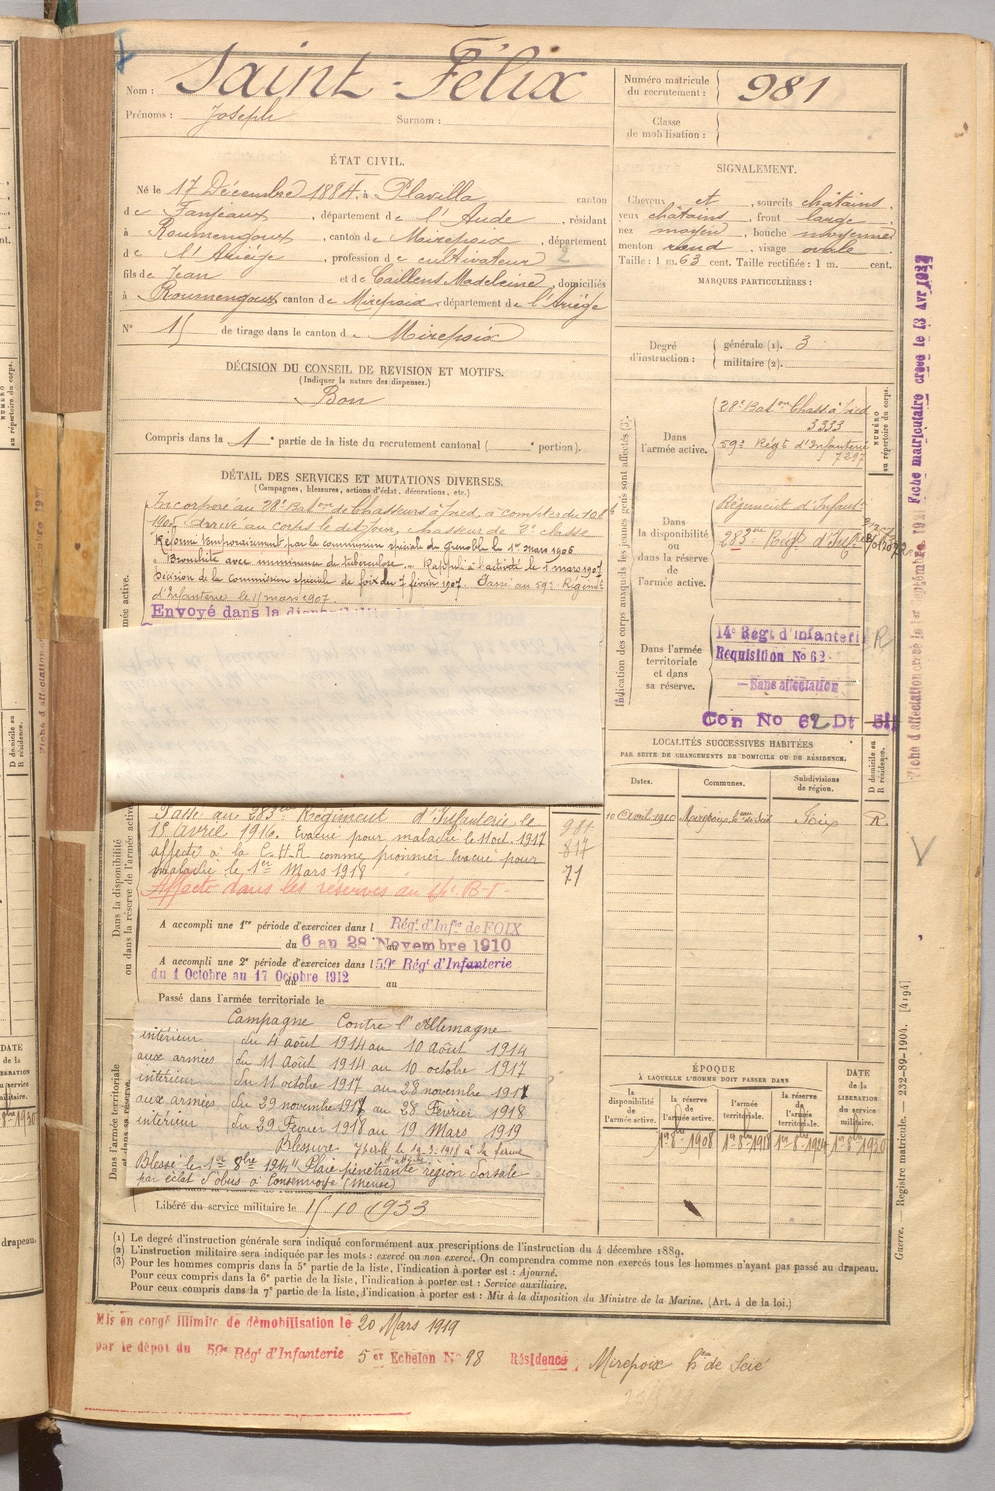 Nom : Saint-Félix
Prénoms : Joseph Surnom :
Numéro matricule du recrutement : 981
Classe de mobilisation :
ÉTAT CIVIL.
Né le 17 Décembre 1884, à Plavilla canton
de Fanjeaux, département de l'Aude, résidant
à Roumengoux, canton de Mirepoix, département
de l'Ariège, profession de cultivateur 2
fils de Jean et de Caillens Madeleine, domiciliés
à Roumengoux canton de Mirepoix, département de l'Ariège
N° 15 de tirage dans le canton de Mirepoix
SIGNALEMENT.
Cheveux et, sourcils châtains,
yeux châtains, front large,
nez moyen, bouche moyenne
menton rond, visage ovale
Taille : 1 m. 63 cent. Taille rectifiée : 1 m. cent.
MARQUES PARTICULIÈRES :
Degré d'instruction : générale (1). 3
militaire (2).
DÉCISION DU CONSEIL DE REVISION ET MOTIFS.
(Indiquer la nature des dispenses.)
Bon
Compris dans la 1e partie de la liste du recrutement cantonal ( e portion).
DÉTAIL DES SERVICES ET MUTATIONS DIVERSES.
(Campagnes, blessures, actions d'éclat, décorations, etc.)
Incorporé au 28e Baton de Chasseurs à pied, à compter du 10 8bre
1905. Arrivé au corps le dit jour, chasseur de 2e classe
Réformé temporairement par la commission spéciale de Grenoble le 1er mars 1906
Bronchite avec imminence de tuberculose. Rappelé à l'activité le 1 mars 1907
Décision de la commission spéciale de foix du 7 février 1907. Passé au 59e Régiment
d'Infanterie le 11 mars 1907
Envoyé dans la disponibilité
Passé au 283eme Régiment d'Infanterie le
1er avril 1916. Evacué pour maladie le 11 oct. 1917
affecté à la C.H.R comme pionnier Evacué pour
maladie le 1er Mars 1918
Affecté dans les réserves au
981
817
71
A accompli une 1re période d'exercices dans l Régt d'Infie de FOIX
du 6 au 28 Novembre 1910
A accompli une 2e période d'exercices dans l 59e Régt d'Infanterie
du 1 Octobre au 17 Octobre 1912 au
Passé dans l'armée territoriale le
Campagne Contre l'Allemagne
intérieur du 4 août 1914 au 10 Août 1914
aux armées du 11 Août 1914 au 10 octobre 1917
intérieur du 11 octobre 1917 au 28 novembre 1917
aux armées du 29 novembre 1917 au 28 Fevrier 1918
intérieur du 29 Février 1918 au 19 Mars 1919
Blessure
Blessé le 1er 8bre 1914 "Plaie pénétrante région dorsale
par éclat d'obus à Consenvoye (Meuse)
Libéré du service militaire le 15 10 1933
Indication des corps auxquels les jeunes gens sont affectés (3).
NUMÉRO au répertoire du corps.
Dans l'armée active.
28e Baton Chass à pied
3333
59e Régt d'Infanterie
7297
Dans la disponibilité ou dans la réserve de l'armée active.
Régiment d'Infant
283eme Regt d'Inf
Dans l'armée territoriale et dans sa réserve.
14e Régt d'Infanterie R
Requisition No 62
Sans affectation
Con No 62 Dt
LOCALITÉS SUCCESSIVES HABITÉES
PAR SUITE DE CHANGEMENTS DE DOMICILE OU DE RÉSIDENCE.
D domicile ou R résidence.
Dates. Communes. Subdivisions de région.
10 Avril 1910 Foix R.
ÉPOQUE
À LAQUELLE L'HOMME DOIT PASSER DANS
DATE de la LIBÉRATION du service militaire.
la disponibilité de l'armée active. la réserve de l'armée active. l'armée territoriale. la réserve de l'armée territoriale.
1er 8bre 1908 1er 8bre 1918 1er 8bre 1924 1er 8bre 1930
(1) Le degré d'instruction générale sera indiqué conformément aux prescriptions de l'instruction du 4 décembre 1889.
(2) L'instruction militaire sera indiquée par les mots : exercé ou non exercé. On comprendra comme non exercés tous les hommes n'ayant pas passé au drapeau.
(3) Pour les hommes compris dans la 5e partie de la liste, l'indication à porter est : Ajourné.
Pour ceux compris dans la 6e partie de la liste, l'indication à porter est : Service auxiliaire.
Pour ceux compris dans la 7e partie de la liste, l'indication à porter est : Mis à la disposition du Ministre de la Marine. (Art. 4 de la loi.)
Mis en congé illimité de démobilisation le 20 Mars 1919
par le dépôt du 59e Régt d'Infanterie 5 er Echelon No 98 Résidence : Mirepoix
Guerre. — Registre matricule. — 232-89-1904. [4194]
Fiche d'affectation créée le 1er Septembre 1931 Fiche matriculaire créée le 13 Avr